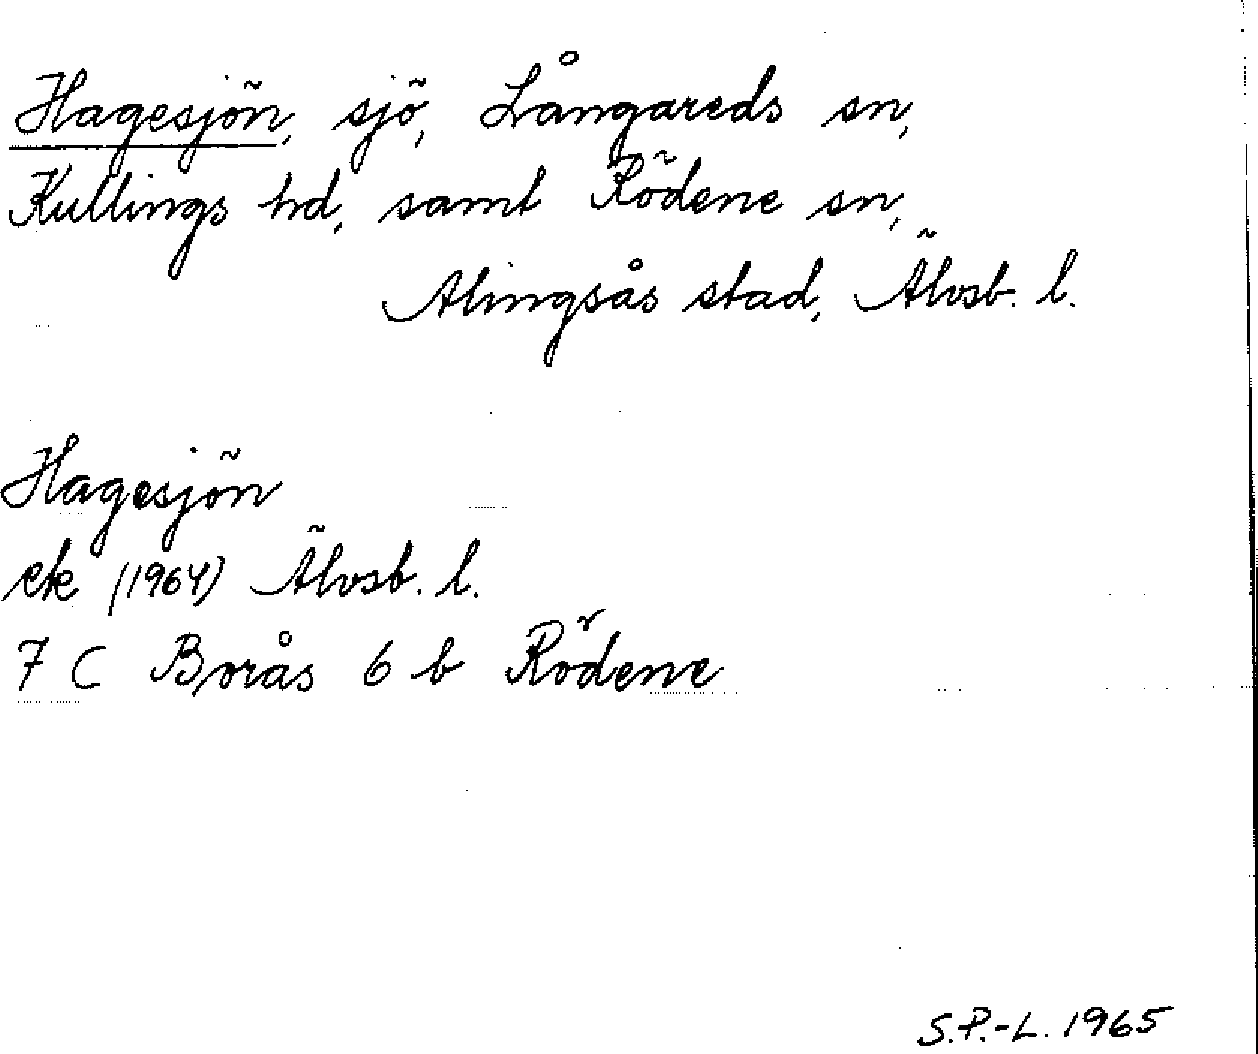 Hagesjön, sjö, Långareds sn,
Kullings hd, samt Rödene sn,
Alingsås stad, Älvsb. l.
Hagesjön
ek (1964) Älvsb. l.
7 C Borås 6 b Rödene
S.P.-L. 1965